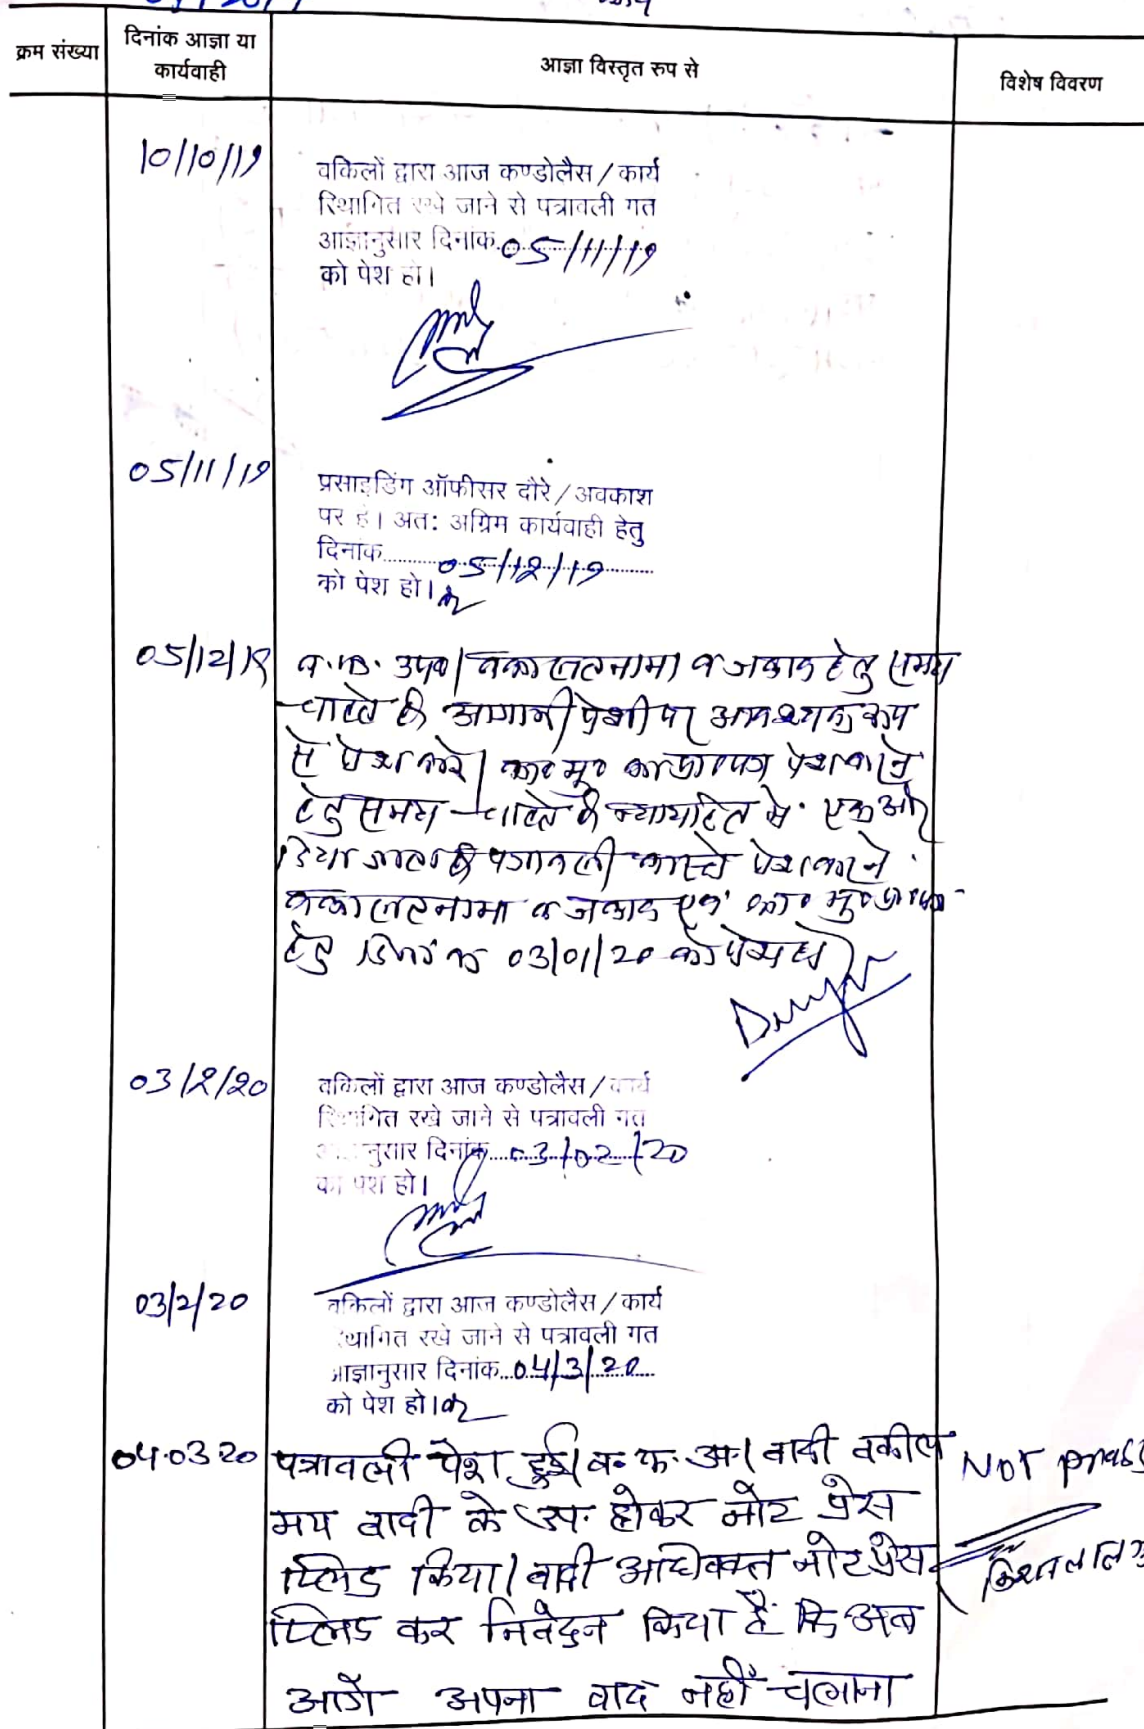 क्रम संख्या
दिनांक आज्ञा या
कार्यवाही
आज्ञा विस्तृत रुप से
विशेष विवरण
10/10/19
वकिलों द्वारा आज कण्डोलैस / कार्य
स्थिगित रखे जाने से पत्रावली गत
आज्ञानुसार दिनांक 05/11/19
को पेश हो।
05/11/19
प्रसाइडिंग ऑफीसर दौरे / अवकाश
पर है। अतः अग्रिम कार्यवाही हेतु
दिनांक 05/12/19
को पेश हो।
05/12/19
वकालतनामा व जवाब हेतु समय
चाहते है आगामी पेशी पर आवश्यक रूप
से पेश करे।
हेतु समय चाहते है न्यायहित मे एक और
दिया जाता है पत्रावली वास्ते पेश करने
वकालतनामा व जवाब एवं
हेतु दिनांक 03/01/20 को पेश हो
03/2/20
वकिलों द्वारा आज कण्डोलैस / कार्य
स्थिगित रखे जाने से पत्रावली गत
आज्ञानुसार दिनांक 03/02/20
को पेश हो।
03/2/20
वकिलों द्वारा आज कण्डोलैस / कार्य
स्थागित रखे जाने से पत्रावली गत
आज्ञानुसार दिनांक 04/3/20
को पेश हो।
04.03.20
पत्रावली पेश हुई। व. फ. अ.। वादी वकील
मय वादी के उप. होकर नोट प्रेस
प्लिड किया। वादी अधिवक्ता नोट प्रेस
प्लिड कर निवेदन किया है कि अब
आगे अपना वाद नहीं चलाना
Not press